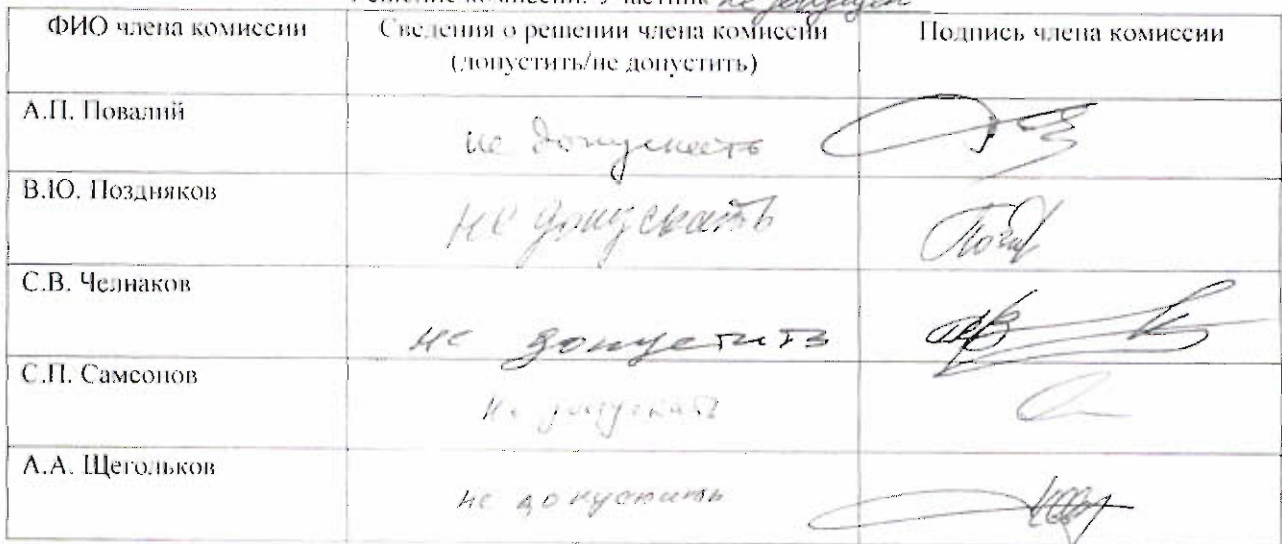 Решение комиссии: Участник не допущен
ФИО члена комиссии
Сведения о решении члена комиссии
(допустить/не допустить)
Подпись члена комиссии
А.П. Повалий
не допустить
В.Ю. Поздняков
не допускать
С.В. Челнаков
не допустить
С.П. Самсонов
не допускать
А.А. Щегольков
не допустить